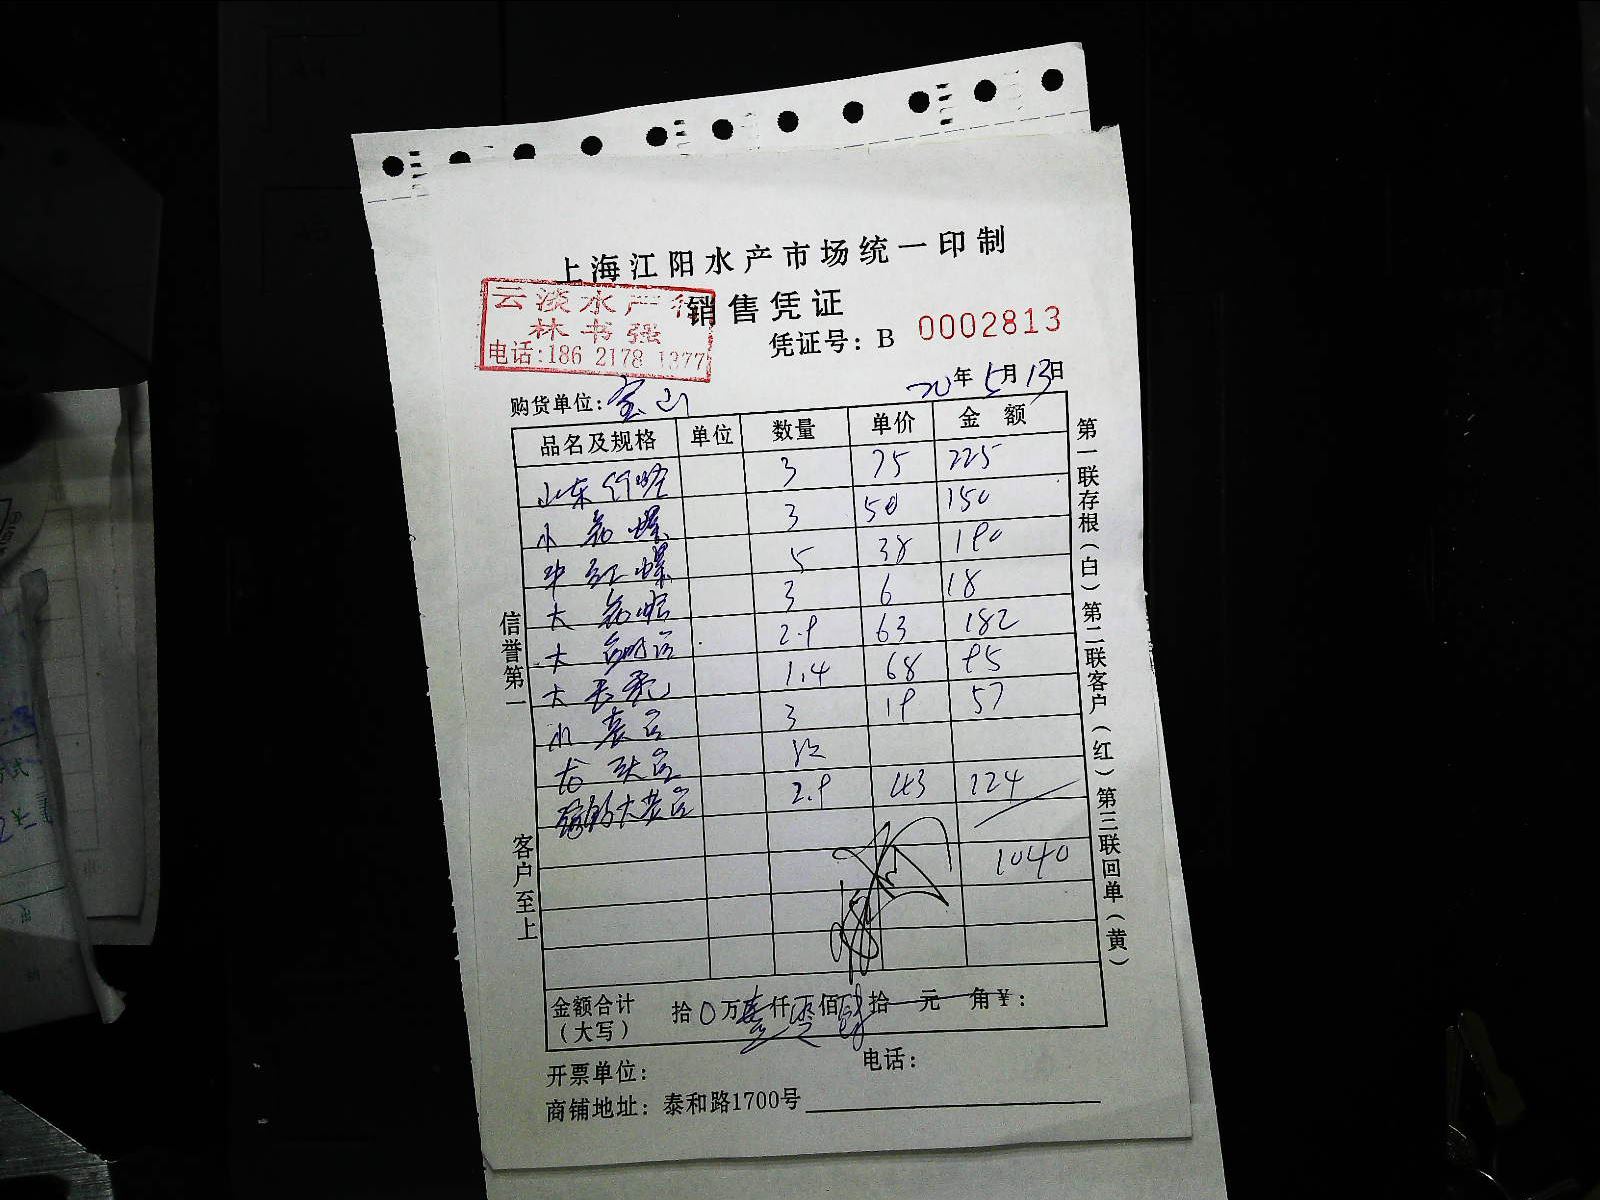 上海江阳水产市场统一印制
销售凭证
云淡水产行
林书强
电话:186 2178 1377
凭证号：B 0002813
20年5月13日
购货单位：宝山
品名及规格 单位 数量 单价 金额
山东 3 75 225
小花螺 3 50 150
中红螺 5 38 190
大花蛤 3 6 18
大 2.9 63 182
大 1.4 68 95
小 3 19 57
龙头
大 2.9 43 124
1040
金额合计（大写） 拾0万壹仟零佰肆拾元角￥：
开票单位：
电话：
商铺地址：泰和路1700号
信誉第一
客户至上
第一联存根（白）第二联客户（红）第三联回单（黄）